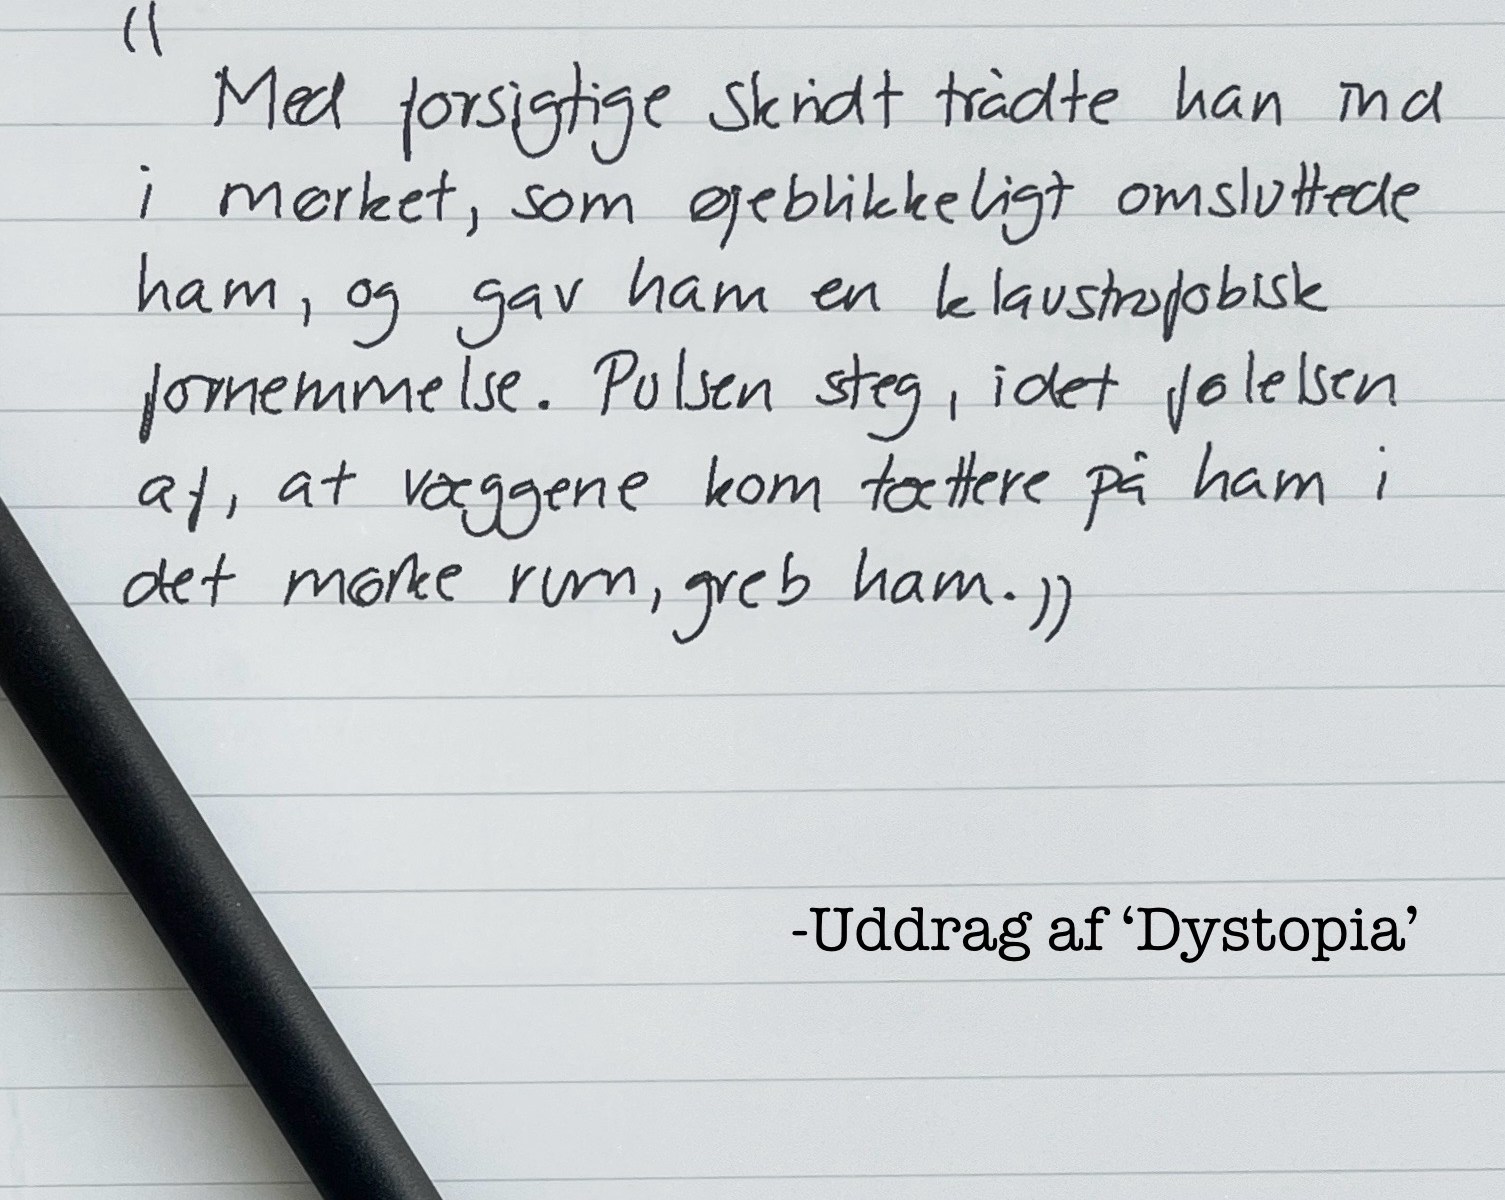 "
Med forsigtige skridt trådte han ind
i mørket, som øjeblikkeligt omsluttede
ham, og gav ham en klaustrofobisk
fornemmelse. Pulsen steg, idet følelsen
af, at væggene kom tættere på ham i
det mørke rum, greb ham."
-Uddrag af ‘Dystopia’